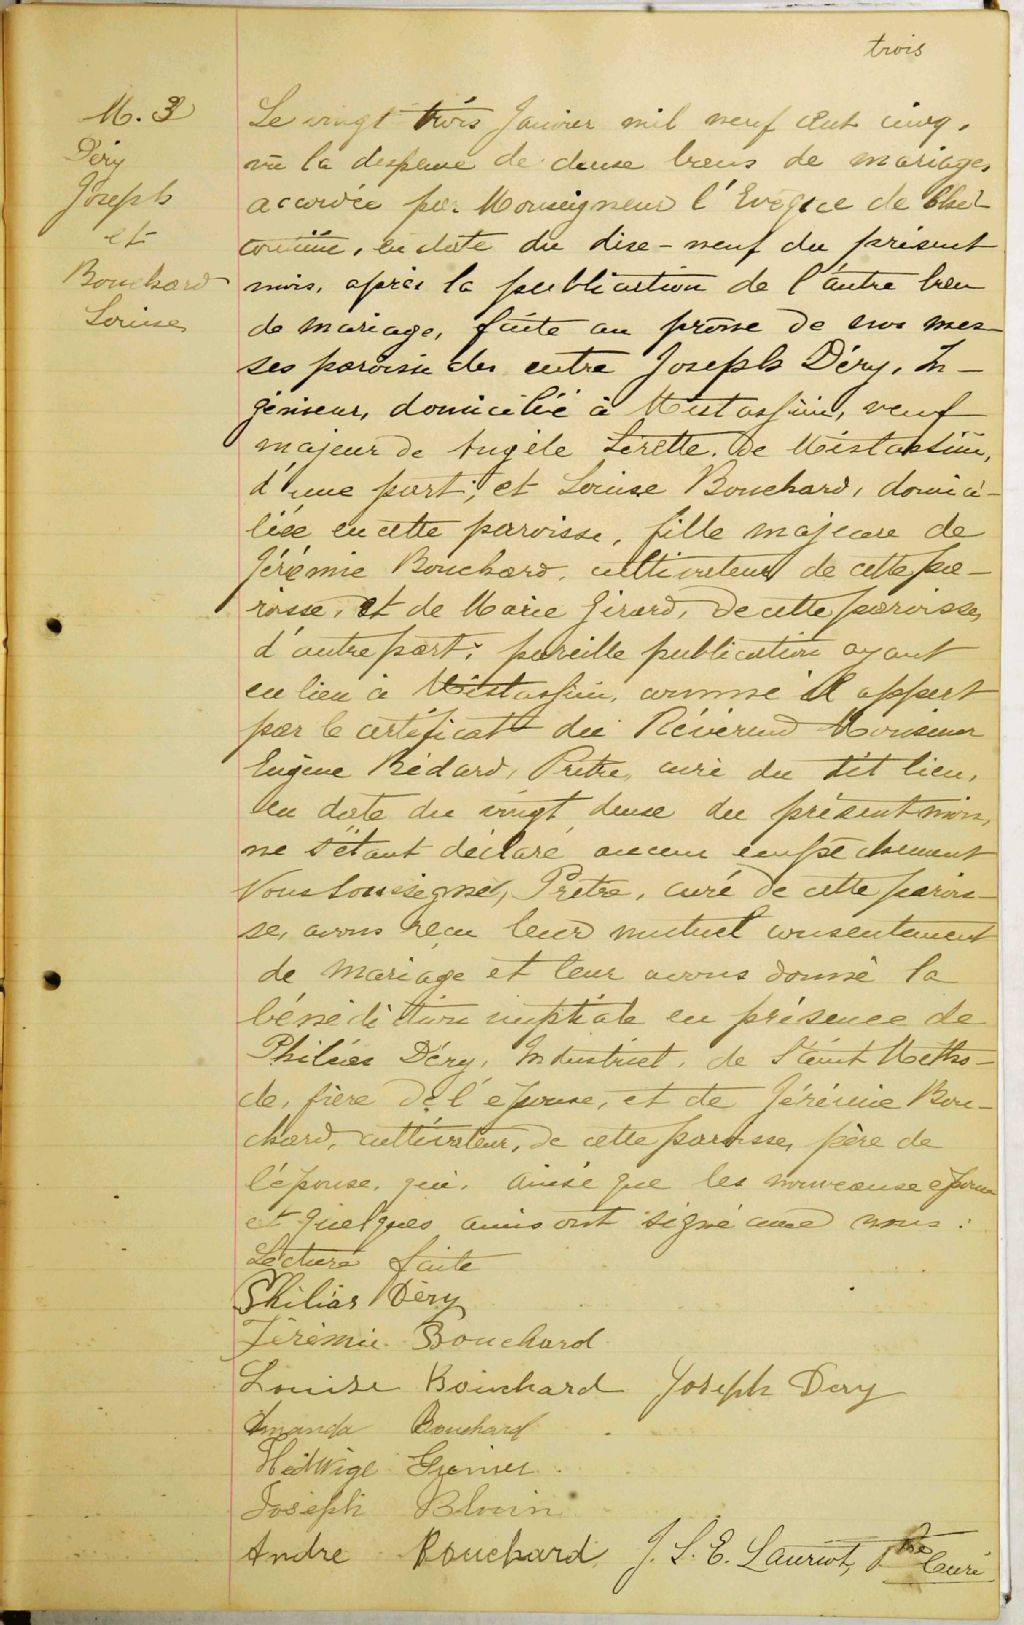 trois
M. 3
Déry
Joseph
et
Bouchard
Louise
Le vingt trois Janvier mil neuf cent cinq,
vu la dispense de deux bans de mariage,
accordée par Monseigneur l'Evêque de Chi-
coutimi, en date du dixe-neuf du présent
mois, après la publication de l'autre ban
de mariage, faite au prône de nos mes-
ses paroissiales entre Joseph Déry, In-
génieur, domicilié à Mistassini, veuf
majeur de Angèle Lirette, de Mistassini,
d'une part; et Louise Bouchard, domici-
liée en cette paroisse, fille majeure de
Jérémie Bouchard, cultivateur de cette pa-
roisse, et de Marie Girard, de cette paroisse,
d'autre part; pareille publication ayant
eu lieu à Mistassini, comme il appert
par le certificat du Révérend Monsieur
Eugène Bédard, Prêtre, curé du dit lieu,
en date du vingt deux du présent mois,
ne s'étant déclaré aucun empêchement
Nous soussigné, Prêtre, curé de cette parois-
se, avons reçu leur mutuel consentement
de mariage et leur avons donné la
bénédiction nuptiale en présence de
Philias Déry, Industriel, de Saint Métho-
de, frère de l'épouse, et de Jérémie Bou-
chard, cultivateur, de cette paroisse, père de
l'épouse, qui, ainsi que les nouveaux époux
et quelques amis ont signé avec nous:
Lecture faite
Philias Déry
Jérémie Bouchard
Louise Bouchard Joseph Dery
Amanda Bouchard
Hedwige Grenier
Joseph Blouin
Andre Bouchard J. L. E. Lauriot, Ptre Curé